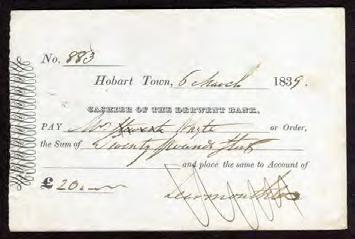 No. 883
Hobart Town, 6 March 1839.
CASHIER OF THE DERWENT BANK,
PAY Mr or Order,
the Sum of Twenty Pounds
and place the same to Account of
£ 20